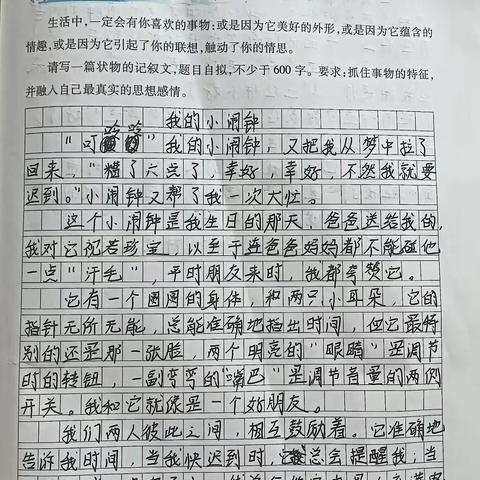 生活中,一定会有你喜欢的事物:或是因为它美好的外形,或是因为它蕴含的
情趣,或是因为它引起了你的联想,触动了你的情思。
请写一篇状物的记叙文,题目自拟,不少于 600 字。要求:抓住事物的特征,
并融入自己最真实的思想感情。
我的小闹钟
“叮铃铃”我的小闹钟,又把我从梦中拉了
回来,“糟了六点了,幸好,幸好,不然我就要
迟到。”小闹钟又帮了我一次大忙。
这个小闹钟是我生日的那天,爸爸送给我的,
我对它视若珍宝,以至于连爸爸妈妈都不能碰他
一点“汗毛”,平时朋友来时,我都夸赞它。
它有一个圆圆的身体,和两只小耳朵,它的
指针无所无能,总能准确地指出时间,但它最特
别的还是那一张脸,两个明亮的“眼睛”是调节
时的转钮,一副弯弯的“嘴巴”是调节音量的两侧
开关。我和它就像是一个好朋友。
我们两人彼此之间,相互鼓励着。它准确地
告诉我时间,当我快迟到时,它总会提醒我;当